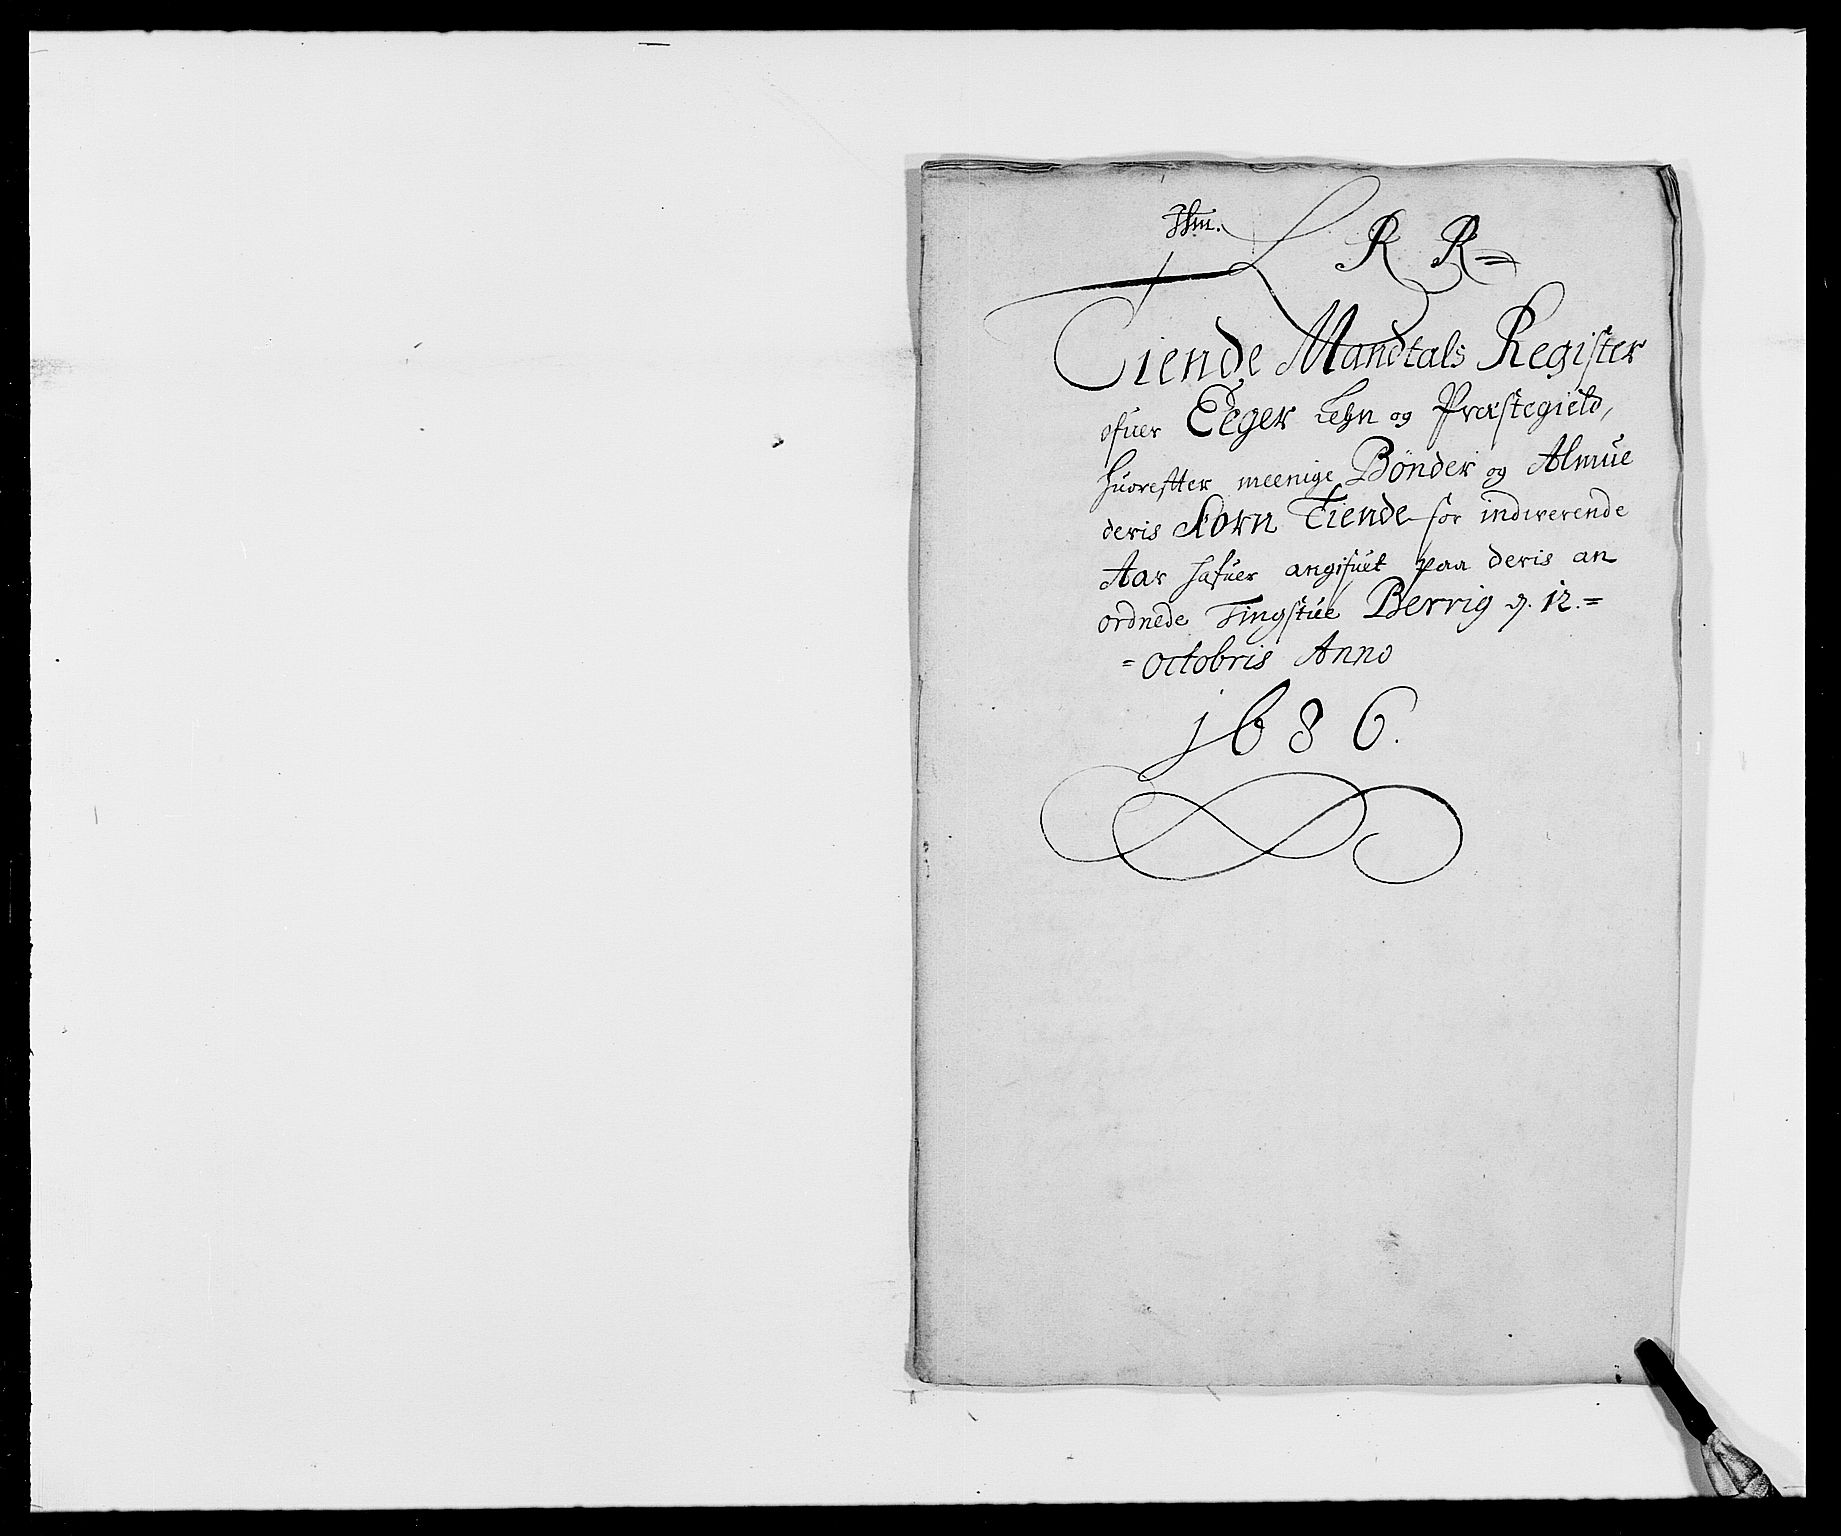 L R R =
Tiende Mandtals Register
ofuer Eeger Lehn og Præstegield,
huorefter meenige Bønder og Almue
deris Korn Tiende for indwerende
Aar hafuer angifuet paa deris an
ordnede Tingstue Berrig d. 12. =
= Octobris Anno
1686.